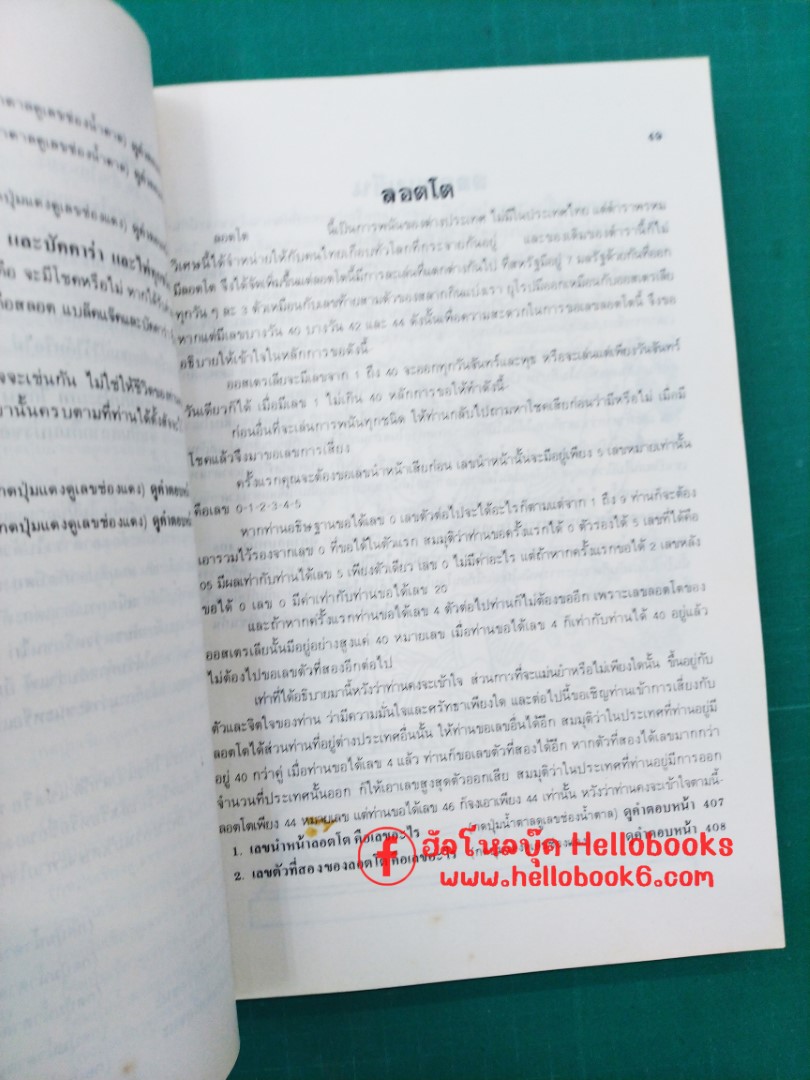 าตาลดูเลขช่องน้ำตาล) ดูคำตอบ
าตาลดูเลขช่องน้ำตาล) ดูคำตอบ
ดปุ่มแดงดูเลขช่องแดง) ดูคำตอบ
และบัคคาร่า และไพ่
คือ จะมีโชคหรือไม่ หากได้รับ
โอสลอต แบล็คแจ็คและบัคคาร่า
จะเช่นกัน ไม่ใช่ให้ชีวิตของ
านั้นครบตามที่ท่านได้ตั้งสัจจะ
าดปุ่มแดงดูเลขช่องแดง) ดูคำตอบหน้
กดปุ่มแดงดูเลขช่องแดง) ดูคำตอบหน้
49
ลอตโต
ลอตโต นี้เป็นการพนันของต่างประเทศ ไม่มีในประเทศไทย แต่ตำราพรหม
วิเศษนี้ได้จำหน่ายให้กับคนไทยเกือบทั่วโลกที่กระจายกันอยู่ และของเดิมของตำรานี้ก็ไม่
มีลอตโต จึงได้จัดเพิ่มขึ้นแต่ลอตโตนี้มีการละเล่นที่แตกต่างกันไป ที่สหรัฐมีอยู่ 7 มลรัฐด้วยกันที่ออก
ทุกวัน ๆ ละ 3 ตัวเหมือนกับเลขท้ายสามตัวของสลากกินแบ่งเรา ยุโรปมีออกเหมือนกับออสเตรเลีย
หากแต่มีเลขบางวัน 40 บางวัน 42 และ 44 ดังนั้นเพื่อความสะดวกในการขอเลขลอตโตนี้ จึงขอ
อธิบายให้เข้าใจในหลักการขอดังนี้-
ออสเตรเลียจะมีเลขจาก 1 ถึง 40 จะออกทุกวันจันทร์และพุธ หรือจะเล่นแต่เพียงวันจันทร์
วันเดียวก็ได้ เมื่อมีเลข 1 ไม่เกิน 40 หลักการขอให้ทำดังนี้-
ก่อนอื่นที่จะเล่นการพนันทุกชนิด ให้ท่านกลับไปถามหาโชคเสียก่อนว่ามีหรือไม่ เมื่อมี
โชคแล้วจึงมาขอเลขการเสี่ยง
ครั้งแรกคุณจะต้องขอเลขนำหน้าเสียก่อน เลขนำหน้านั้นจะมีอยู่เพียง 5 เลขหมายเท่านั้น
คือเลข 0-1-2-3-4-5
หากท่านอธิษฐานขอได้เลข 0 เลขตัวต่อไปจะได้อะไรก็ตามแต่จาก 1 ถึง 9 ท่านก็จะต้อง
เอารวมไว้รองจากเลข 0 ที่ขอได้ในตัวแรก สมมุติว่าท่านขอครั้งแรกได้ 0 ตัวรองได้ 5 เลขที่ได้คือ
05 มีผลเท่ากับท่านได้เลข 5 เพียงตัวเดียว เลข 0 ไม่มีค่าอะไร แต่ถ้าหากครั้งแรกขอได้ 2 เลขหลัง
ขอได้ 0 เลข 0 มีค่าเท่ากับท่านขอได้เลข 20
และถ้าหากครั้งแรกท่านขอได้เลข 4 ตัวต่อไปท่านก็ไม่ต้องขออีก เพราะเลขลอตโตของ
ออสเตรเลียนั้นมีอยู่อย่างสูงแค่ 40 หมายเลข เมื่อท่านขอได้เลข 4 ก็เท่ากับท่านได้ 40 อยู่แล้ว
ไม่ต้องไปขอเลขตัวที่สองอีกต่อไป
เท่าที่ได้อธิบายมานี้หวังว่าท่านคงจะเข้าใจ ส่วนการที่จะแม่นยำหรือไม่เพียงใดนั้น ขึ้นอยู่กับ
ตัวและจิตใจของท่าน ว่ามีความมั่นใจและศรัทธาเพียงใด และต่อไปนี้ขอเชิญท่านเข้าการเสี่ยงกับ
ลอตโตได้ส่วนท่านที่อยู่ต่างประเทศอื่นนั้น ให้ท่านขอเลขอื่นได้อีก สมมุติว่าในประเทศที่ท่านอยู่มี
อยู่ 40 กว่าคู่ เมื่อท่านขอได้เลข 4 แล้ว ท่านก็ขอเลขตัวที่สองได้อีก หากตัวที่สองได้เลขมากกว่า
จำนวนที่ประเทศนั้นออก ก็ให้เอาเลขสูงสุดตัวออกเสีย สมมุติว่าในประเทศที่ท่านอยู่มีการออก
ลอตโตเพียง 44 หมายเลข แต่ท่านขอได้เลข 46 ก็จงเอาเพียง 44 เท่านั้น หวังว่าท่านคงจะเข้าใจตามนี้-
1. เลขนำหน้าลอตโต คือเลขอะไร กดปุ่มน้ำตาลดูเลขช่องน้ำตาล) ดูคำตอบหน้า 407
2. เลขตัวที่สองของลอตโต คือเลขอะไร ดูคำตอบหน้า 408
f ฮัลโหลบุ๊ค Hellobooks
www.hellobook6.com